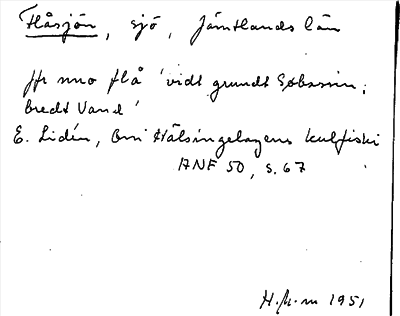 Flåsjön, sjö, Jämtlands län
jfr nno flå 'vidt grundt Søbassin;
bredt Vand'
E. Lidén, Om Hälsingelagens kulfiski
ANF 50, s. 67
1951